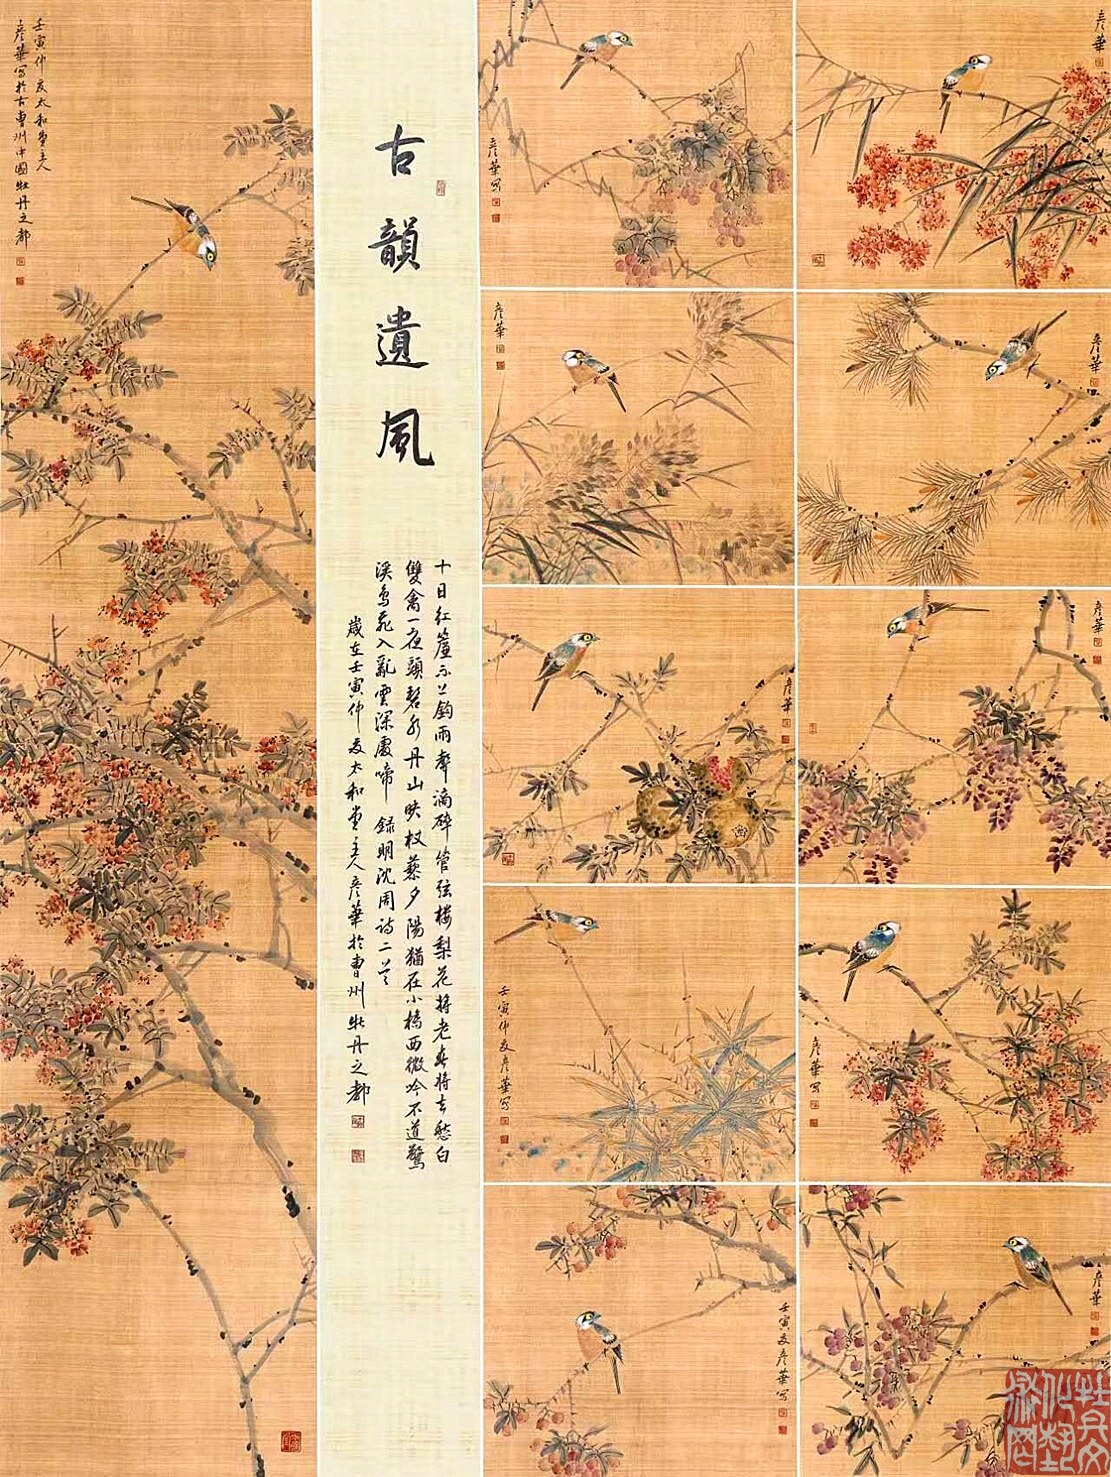 壬寅仲夏太和堂主人
彦華写於古曹州中國牡丹之都
古韻遺風
十日红簾不上鈎雨聲滴碎管弦楼梨花将老春将去愁白
雙禽一夜頭碧水丹山映杖藜夕陽猶在小橋西微吟不道驚
溪鳥飛入亂雲深處啼 録明沈周诗二首
歲在壬寅仲夏太和堂主人彦華於曹州牡丹之都
彦華写
彦華
彦華
彦華
彦華
彦華
壬寅仲夏彦華写
彦華写
壬寅夏彦華写
彦華